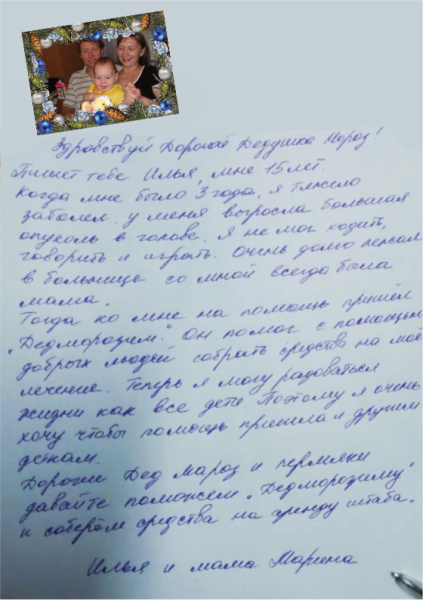 Здравствуй Дорогой Дедушка Мороз!
Пишет тебе Илья, мне 15 лет.
Когда мне было 3 года, я тяжело
заболел. у меня выросла большая
опухоль в голове. Я не мог ходить,
говорить и играть. Очень долго лежал
в больнице со мной всегда была
мама.
Тогда ко мне на помощь пришёл
"Дедморозим". Он помог с помощью
добрых людей собрать средства на моё
лечение. Теперь я могу радоваться
жизни как все дети. Поэтому я очень
хочу чтобы помощь пришла и другим
деткам.
Дорогой Дед Мароз и пермяки
давайте поможем "Дедморозиму"
и соберём средства на аренду штаба.
Илья и мама Марина